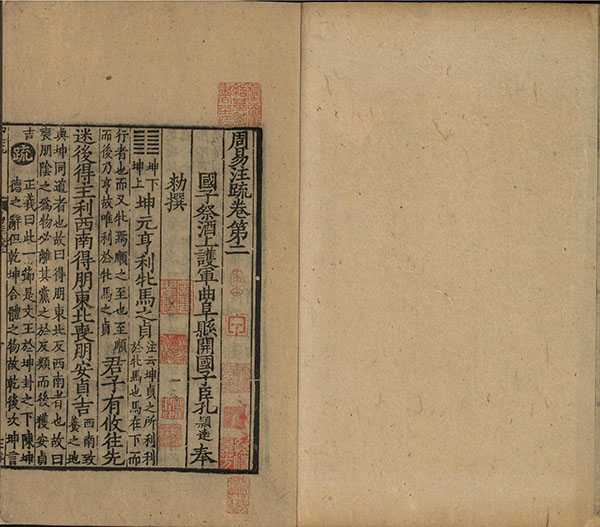 周易注疏卷第二
國子祭酒上護軍曲阜縣開國子臣孔穎達奉
勑撰
䷁坤下坤上坤元亨利牝馬之貞注云坤貞之所利利於牝馬也馬在下而
行者也而又牝焉順之至也至順而後乃亨故唯利於牝馬之貞君子有攸往先
迷後得主利西南得朋東北喪朋安貞吉西南致養之地
與坤同道者也故曰得朋東北反西南者也故曰喪朋陰之爲物必離其黨之於反類而後獲安貞
吉疏正義曰此一節是文王於坤卦之下陳坤德之辭但乾坤合體之物故乾後次坤言